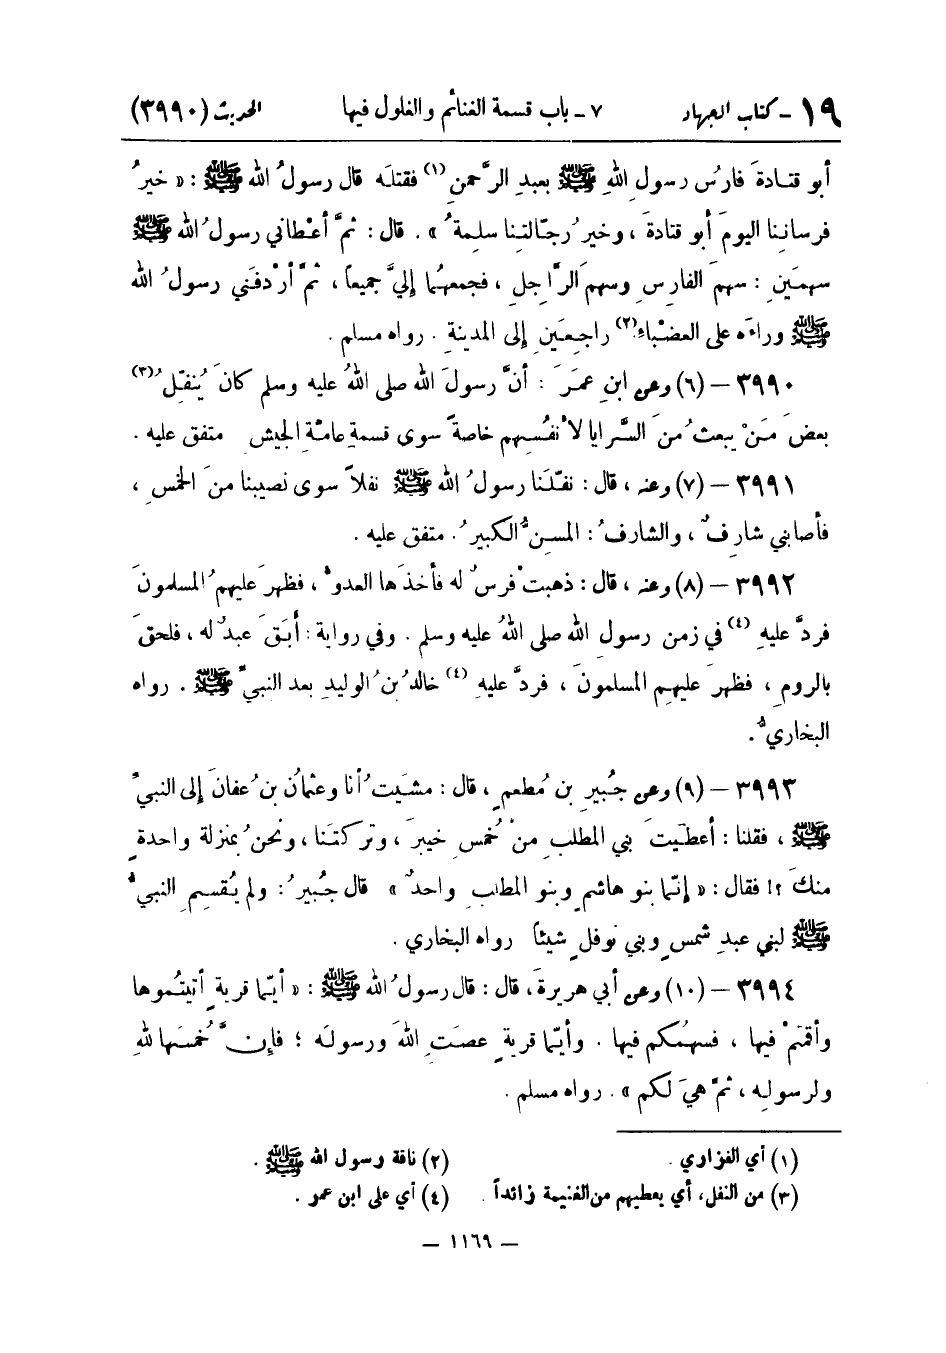 ١٩ - كتاب الجهاد ٧ - باب قسمة الغنائم والغلول فيها الحديث (٣٩٩٠)
أبو قتادةَ فارسُ رسولِ اللهِ ﷺ بعبدِ الرَّحمنِ(١) فقتلَه قال رسولُ الله ﷺ : « خيرُ
فرسانِنا اليومَ أبو قتادةَ ، وخيرُ رجّالتِنا سلمةُ » . قال : ثمَّ أعْطاني رسولُ الله ﷺ
سهمَينِ : سهمَ الفارِسِ وسهمَ الرَّاجلِ ، فجمعهُما إليَّ جميعاً ، ثمَّ أرْدفَني رسولُ الله
ﷺ وراءَه على العضْباءِ(٢) راجعَينِ إلى المدينةِ . رواه مسلم .
٣٩٩٠ - (٦) وعن ابنِ عمَرَ : أنَّ رسولَ الله صلى اللهُ عليه وسلم كانَ يُنفِّلُ(٣)
بعضَ مَنْ يبعثُ منَ السَّرايا لأنفُسِهم خاصةً سوى قسمةِ عامّةِ الجيشِ متفق عليه .
٣٩٩١ - (٧) وعنه ، قال : نفّلَنا رسولُ الله ﷺ نفلاً سوى نصيبنا منَ الخمسِ ،
فأصابني شارِفٌ ، والشارفُ : المسنُّ الكبيرُ . متفق عليه .
٣٩٩٢ - (٨) وعنه ، قال : ذهبتْ فرسٌ له فأخذَها العدوُّ ، فظهرَ عليهمُ المسلمونَ
فردَّ عليهِ(٤) في زمنِ رسولِ الله صلى اللهُ عليه وسلم . وفي رواية : أبَقَ عبدٌ له ، فلحقَ
بالرومِ ، فظهرَ عليهِم المسلمونَ ، فردَّ عليهِ(٤) خالدُ بنُ الوليدِ بعد النبيِّ ﷺ . رواه
البخاريُّ .
٣٩٩٣ - (٩) وعن جُبيرِ بنِ مُطعمٍ ، قال : مشَيتُ أنا وعثمانُ بنُ عفانَ إلى النبيِّ
ﷺ ، فقلنا : أعطَيتَ بني المطلبِ منْ خُمسِ خيبرَ ، وتركتَنا ، ونحنُ بمنزلةٍ واحدةٍ
منكَ ؟! فقال : « إنّما بنو هاشمٍ وبنو المطلبِ واحدٌ » قال جُبيرُ : ولم يُقسِمِ النبيُّ
ﷺ لبني عبدِ شمسٍ وبني نوفلٍ شيئاً رواه البخاري .
٣٩٩٤ - (١٠) وعن أبي هريرةَ ، قال : قال رسولُ الله ﷺ : « أيّما قريةٍ أتيتُموها
وأقمتمْ فيها ، فسهمُكم فيها . وأيّما قريةٍ عصَتِ اللهَ ورسولَه ؛ فإنَّ خُمسَها للهِ
ولرسولِه ، ثمَّ هيَ لكم » . رواه مسلم .
(١) أي الفزاري . (٢) ناقة رسول الله ﷺ .
(٣) من النفل، أي يعطيهم من الغنيمة زائداً . (٤) أي على ابن عمر .
- ١١٦٩ -